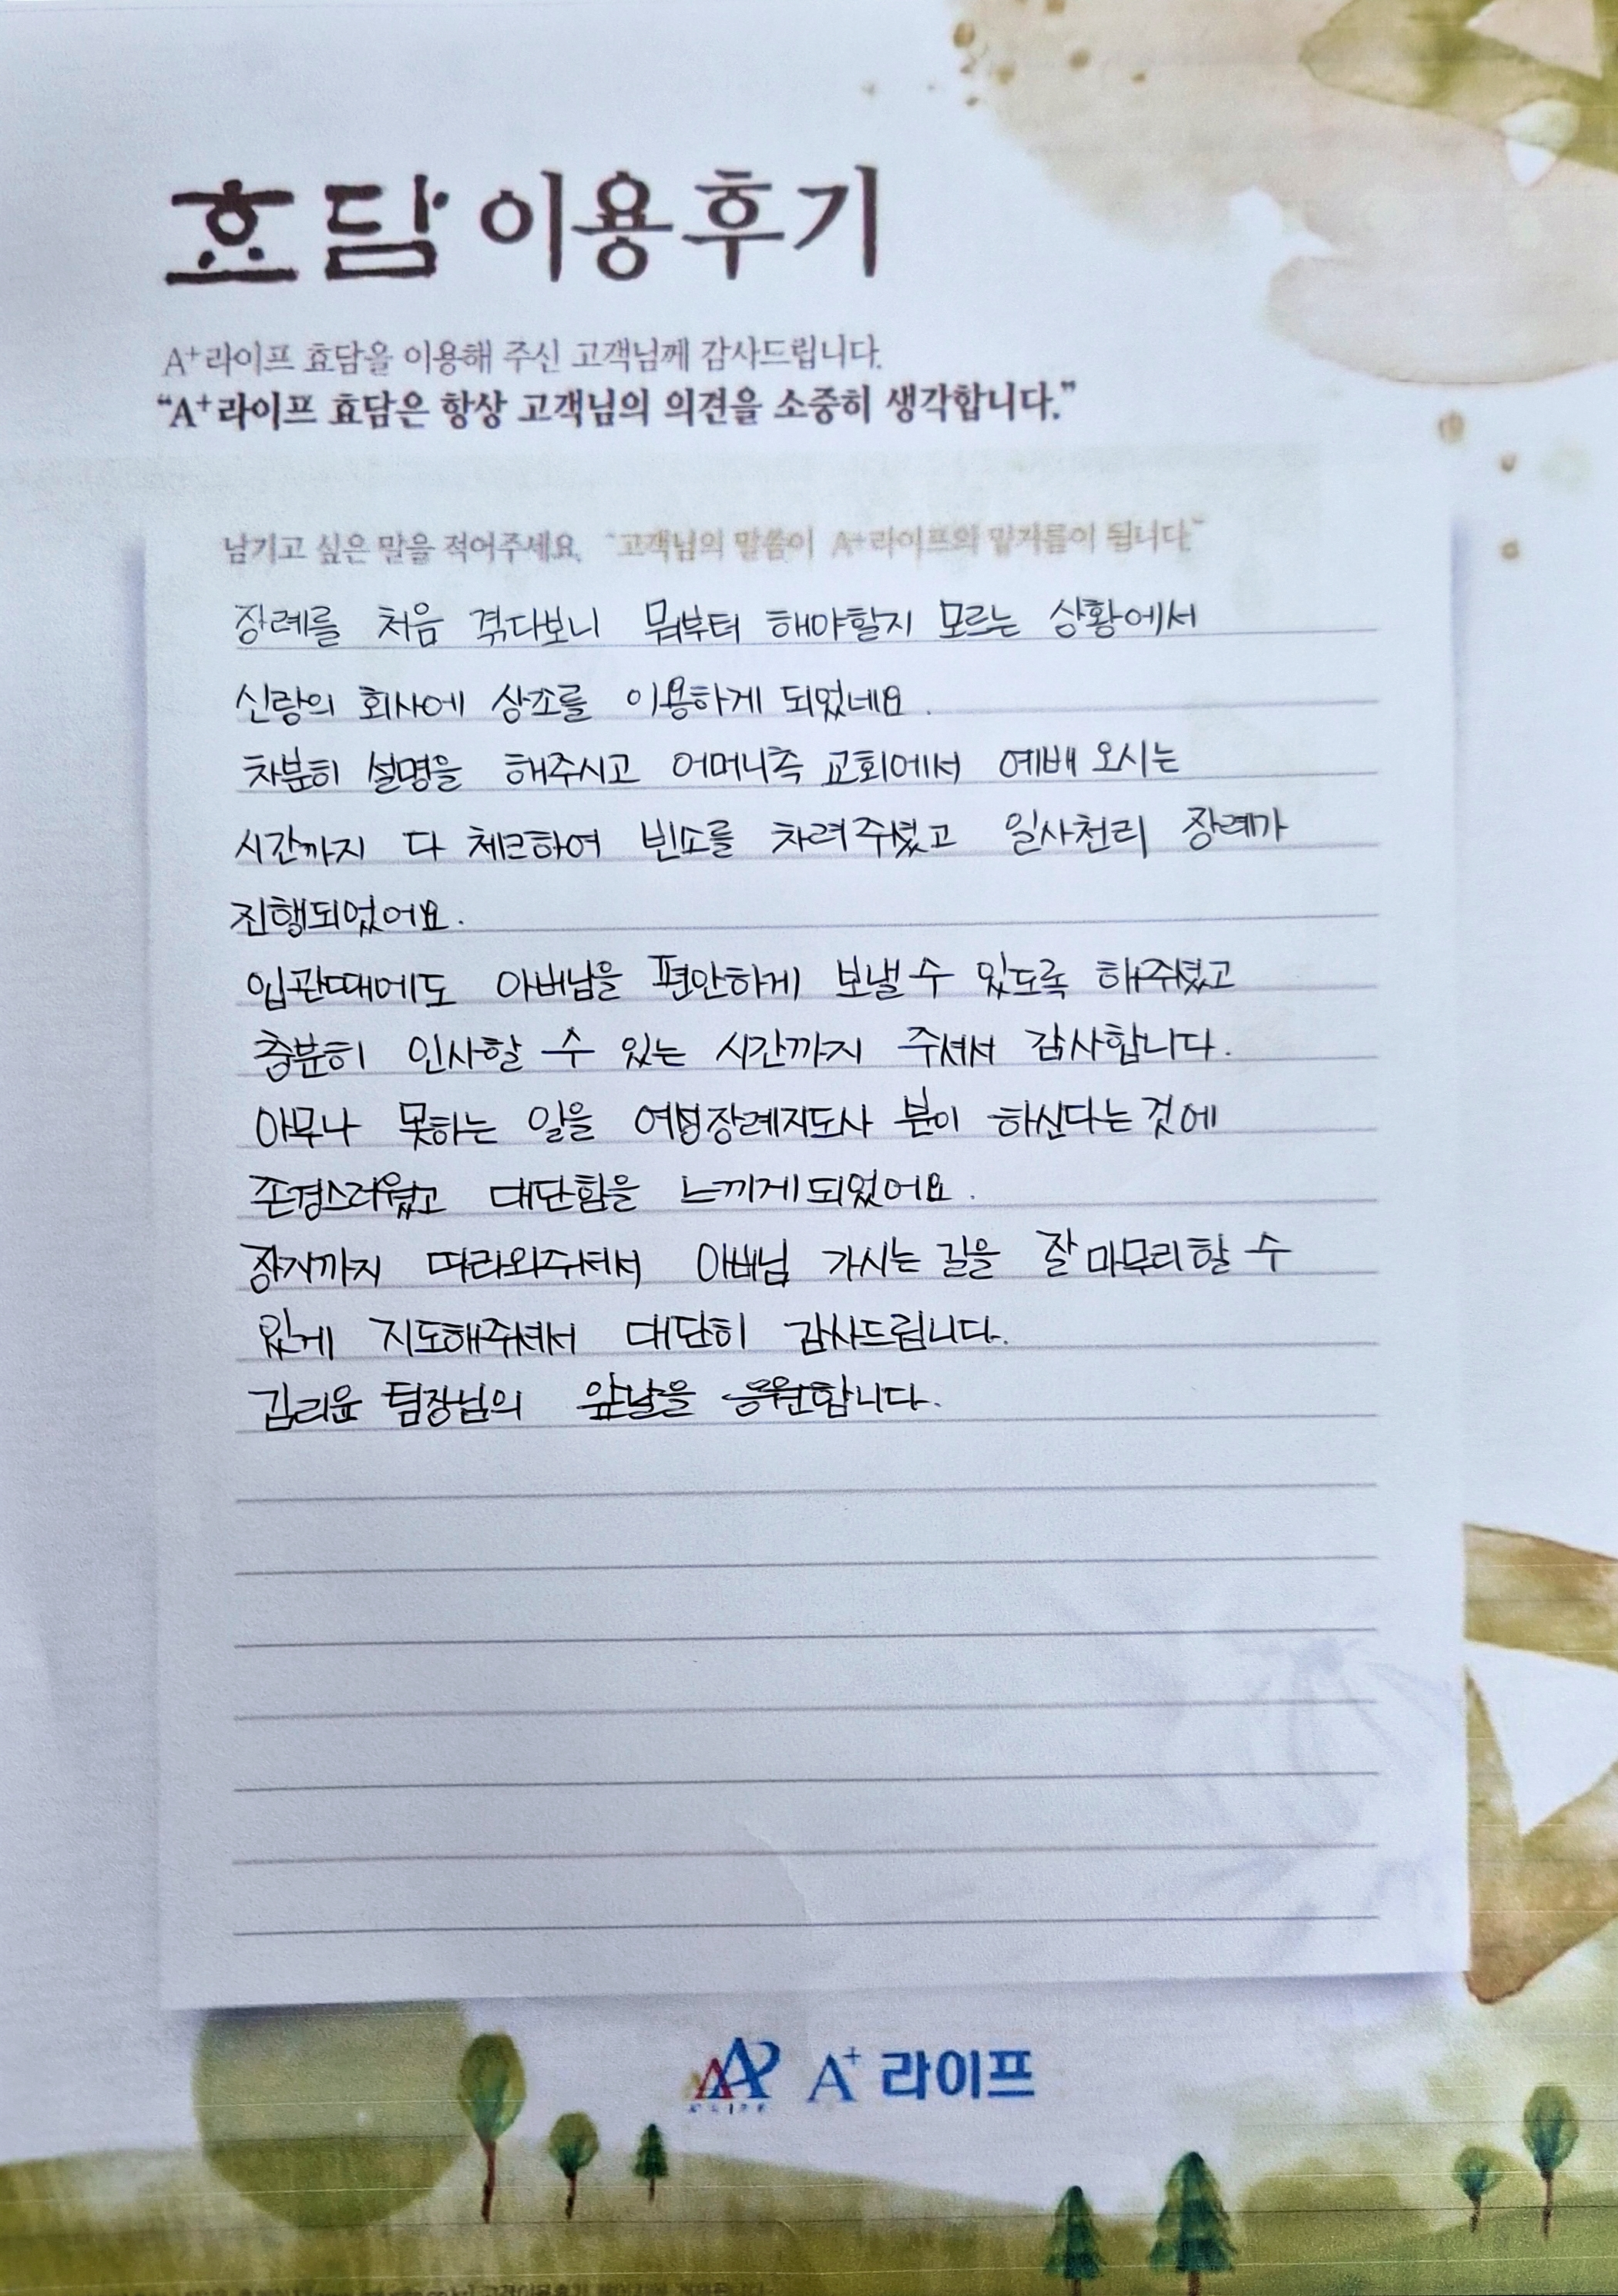 효담 이용후기
A+라이프 효담을 이용해 주신 고객님께 감사드립니다.
“A+라이프 효담은 항상 고객님의 의견을 소중히 생각합니다.”
남기고 싶은 말을 적어주세요. “고객님의 말씀이 A+라이프의 밑거름이 됩니다.”
장례를 처음 겪다보니 뭐부터 해야할지 모르는 상황에서
신랑의 회사에 상조를 이용하게 되었네요.
차분히 설명을 해주시고 어머니측 교회에서 예배 오시는
시간까지 다 체크하여 빈소를 차려주셨고 일사천리 장례가
진행되었어요.
입관때에도 아버님을 편안하게 보낼 수 있도록 해주셨고
충분히 인사할 수 있는 시간까지 주셔서 감사합니다.
아무나 못하는 일을 여성장례지도사 분이 하신다는 것에
존경스러웠고 대단함을 느끼게되었어요.
장지까지 따라와주셔서 아버님 가시는 길을 잘 마무리할 수
있게 지도해주셔서 대단히 감사드립니다.
김리윤 팀장님의 앞날을 응원합니다.
A+ 라이프